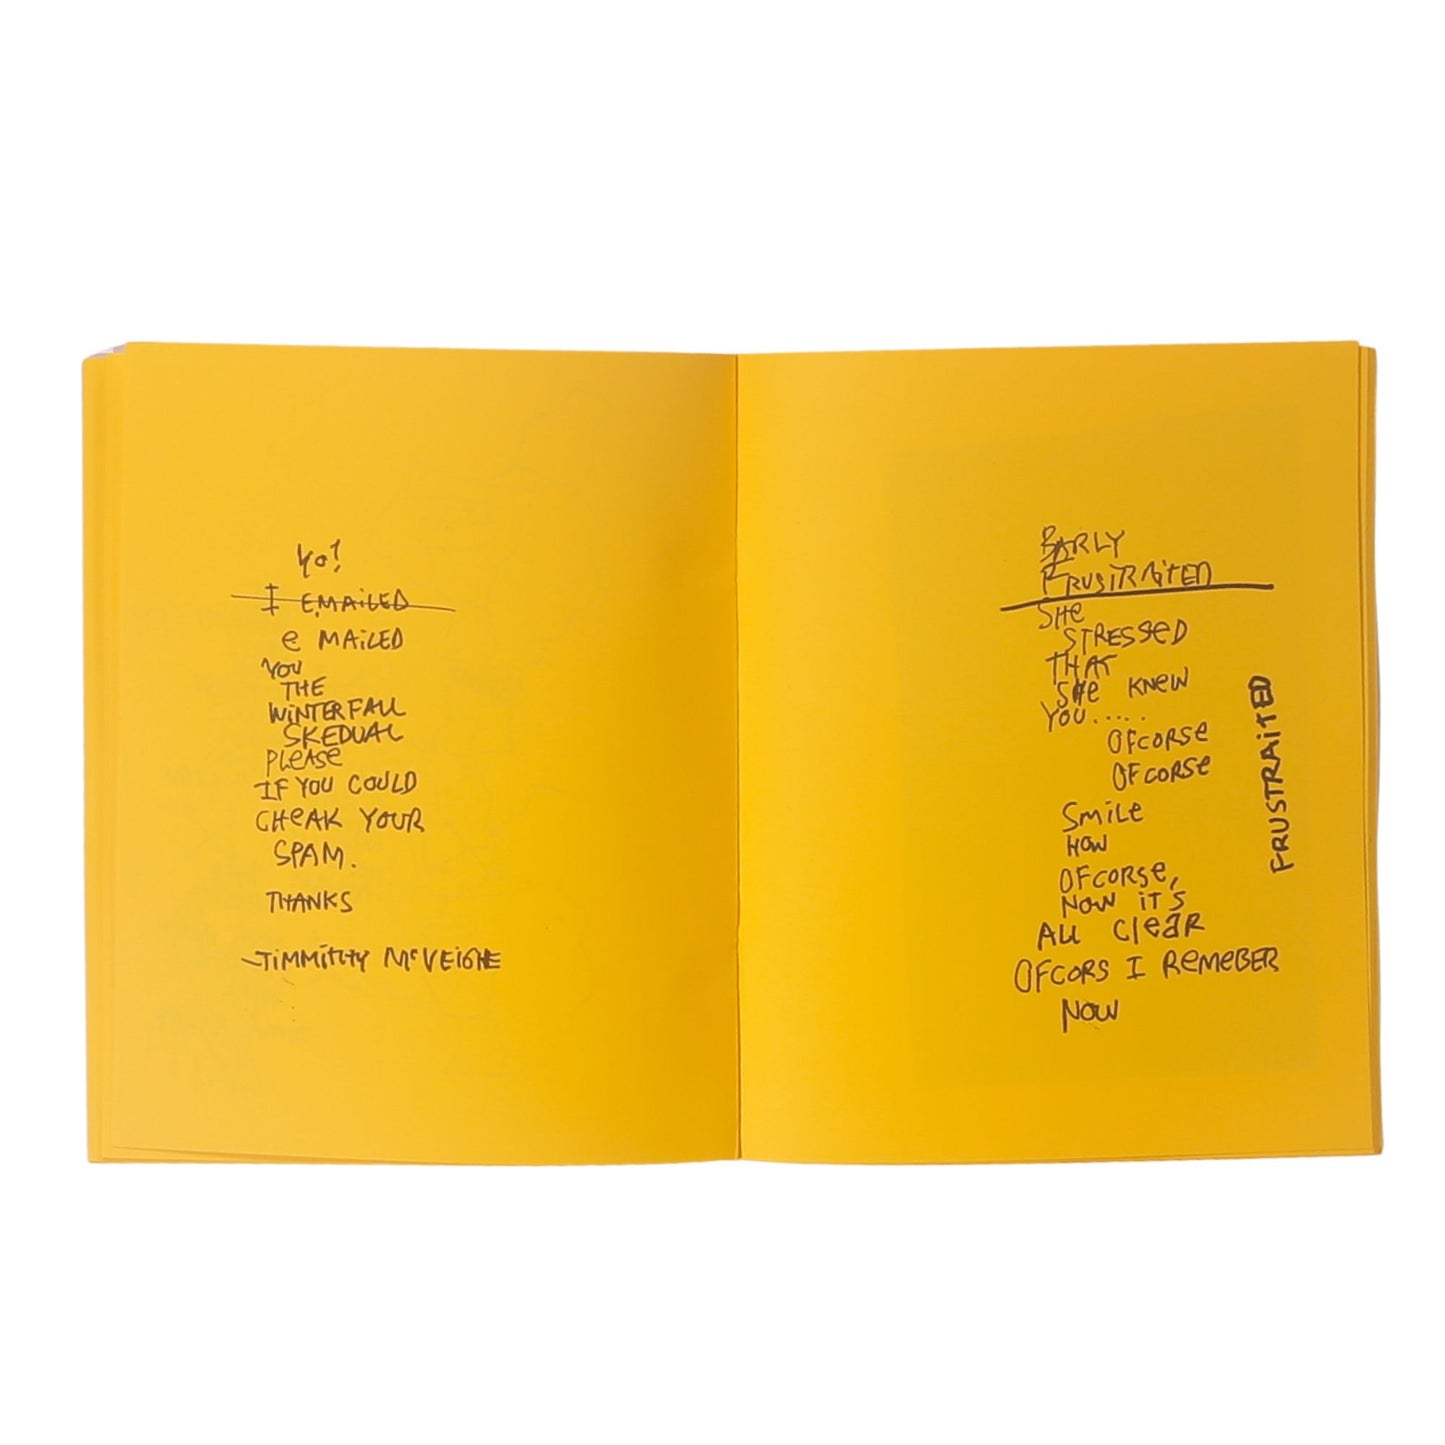 Yo!
I EMAILED
e MAILED
YOU
THE
WINTERFALL
SKEDUAL
PLEASE
IF YOU COULD
CHEAK YOUR
SPAM.
THANKS
McVEIGHE
BARLY
FRUSTRAITED
SHe
STRESSED
THAT
SHe KNEW
YOU.....
OFCORSE
OFCORSE
SMiLe
HOW
OFCORSE,
NOW iTS
ALL CleaR
OFCORS I REMEBER
NOW
FRUSTRAITED